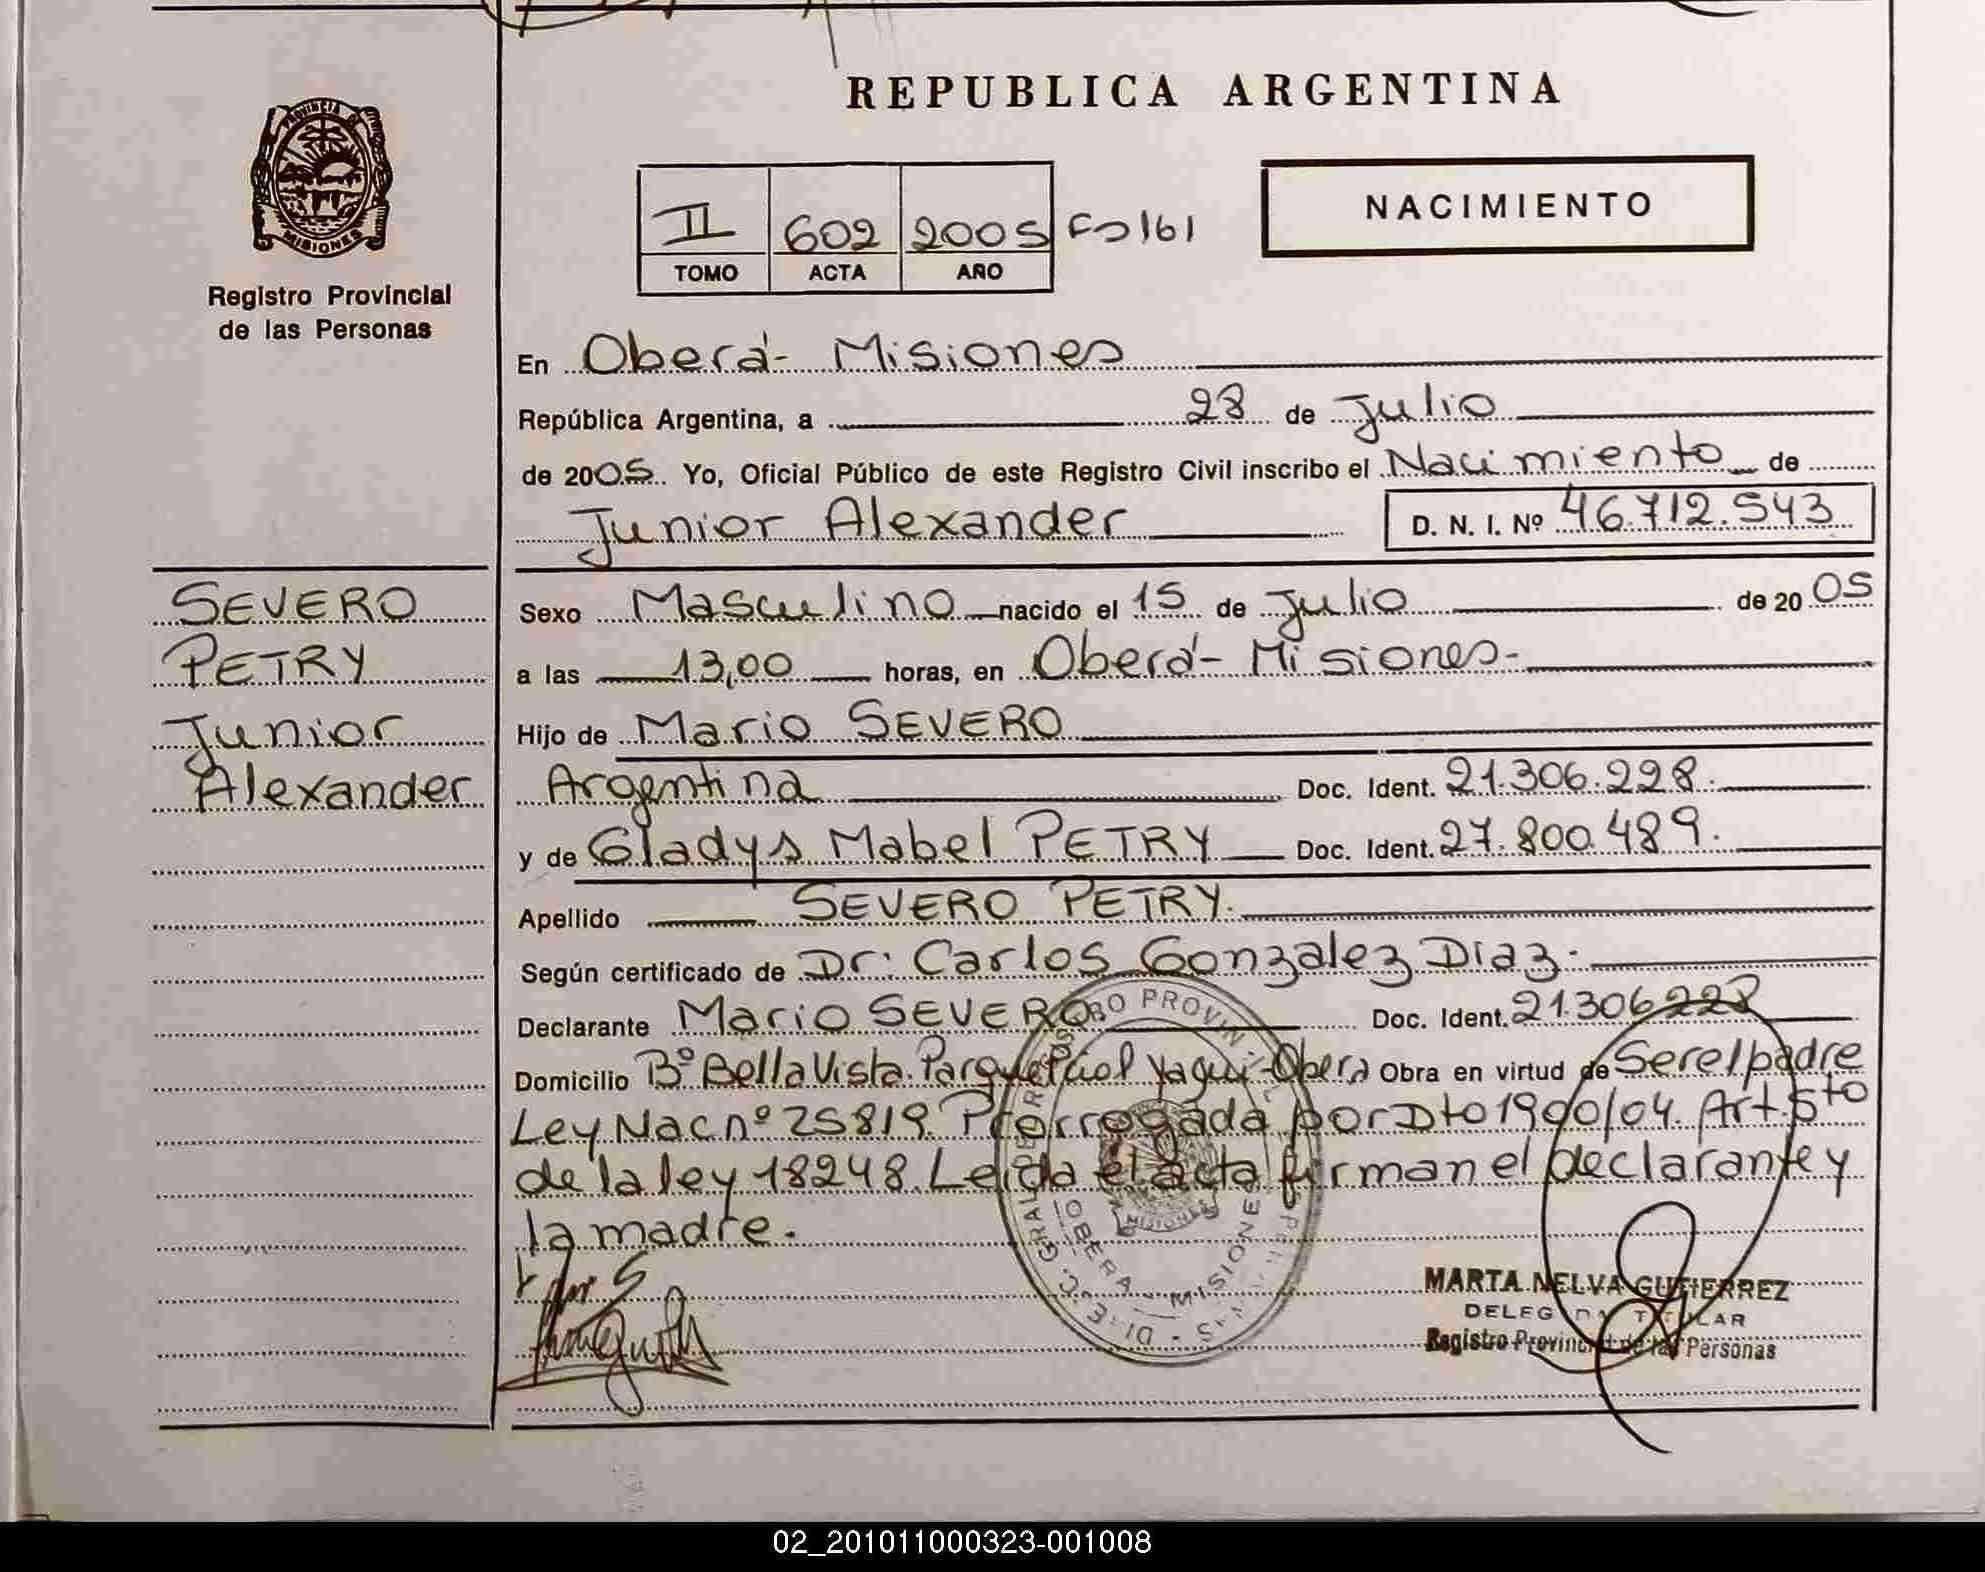 REPUBLICA ARGENTINA
PROVINCIA DE
MISIONES
Registro Provincial
de las Personas
II 602 2005 Fo 161
TOMO ACTA AÑO
NACIMIENTO
En Oberá- Misiones
República Argentina, a 28 de Julio
de 2005 Yo, Oficial Público de este Registro Civil inscribo el Nacimiento de
Junior Alexander D. N. I. Nº 46.712.543
SEVERO
PETRY
Junior
Alexander
Sexo Masculino nacido el 15 de Julio de 2005
a las 13,00 horas, en Oberá- Misiones-
Hijo de Mario SEVERO
Argentina Doc. Ident. 21.306.228.
y de Gladys Mabel PETRY Doc. Ident. 27.800.489.
Apellido SEVERO PETRY.
Según certificado de Dr: Carlos Gonzalez Diaz.
Declarante Mario SEVERO Doc. Ident. 21.306.228
Domicilio Bº Bella Vista. Yaqui-Obera Obra en virtud de Ser el padre
Ley Nac nº 25819. Prorrogada por Dto 1900/04. Art. 5to
de la ley 18248. Leida el acta firman el declarante y
la madre.
OBERA - MISIONES
MISIONES
MARTA NELVA GUTIERREZ
DELEGADA TITULAR
Registro Provincial de las Personas
02_201011000323-001008